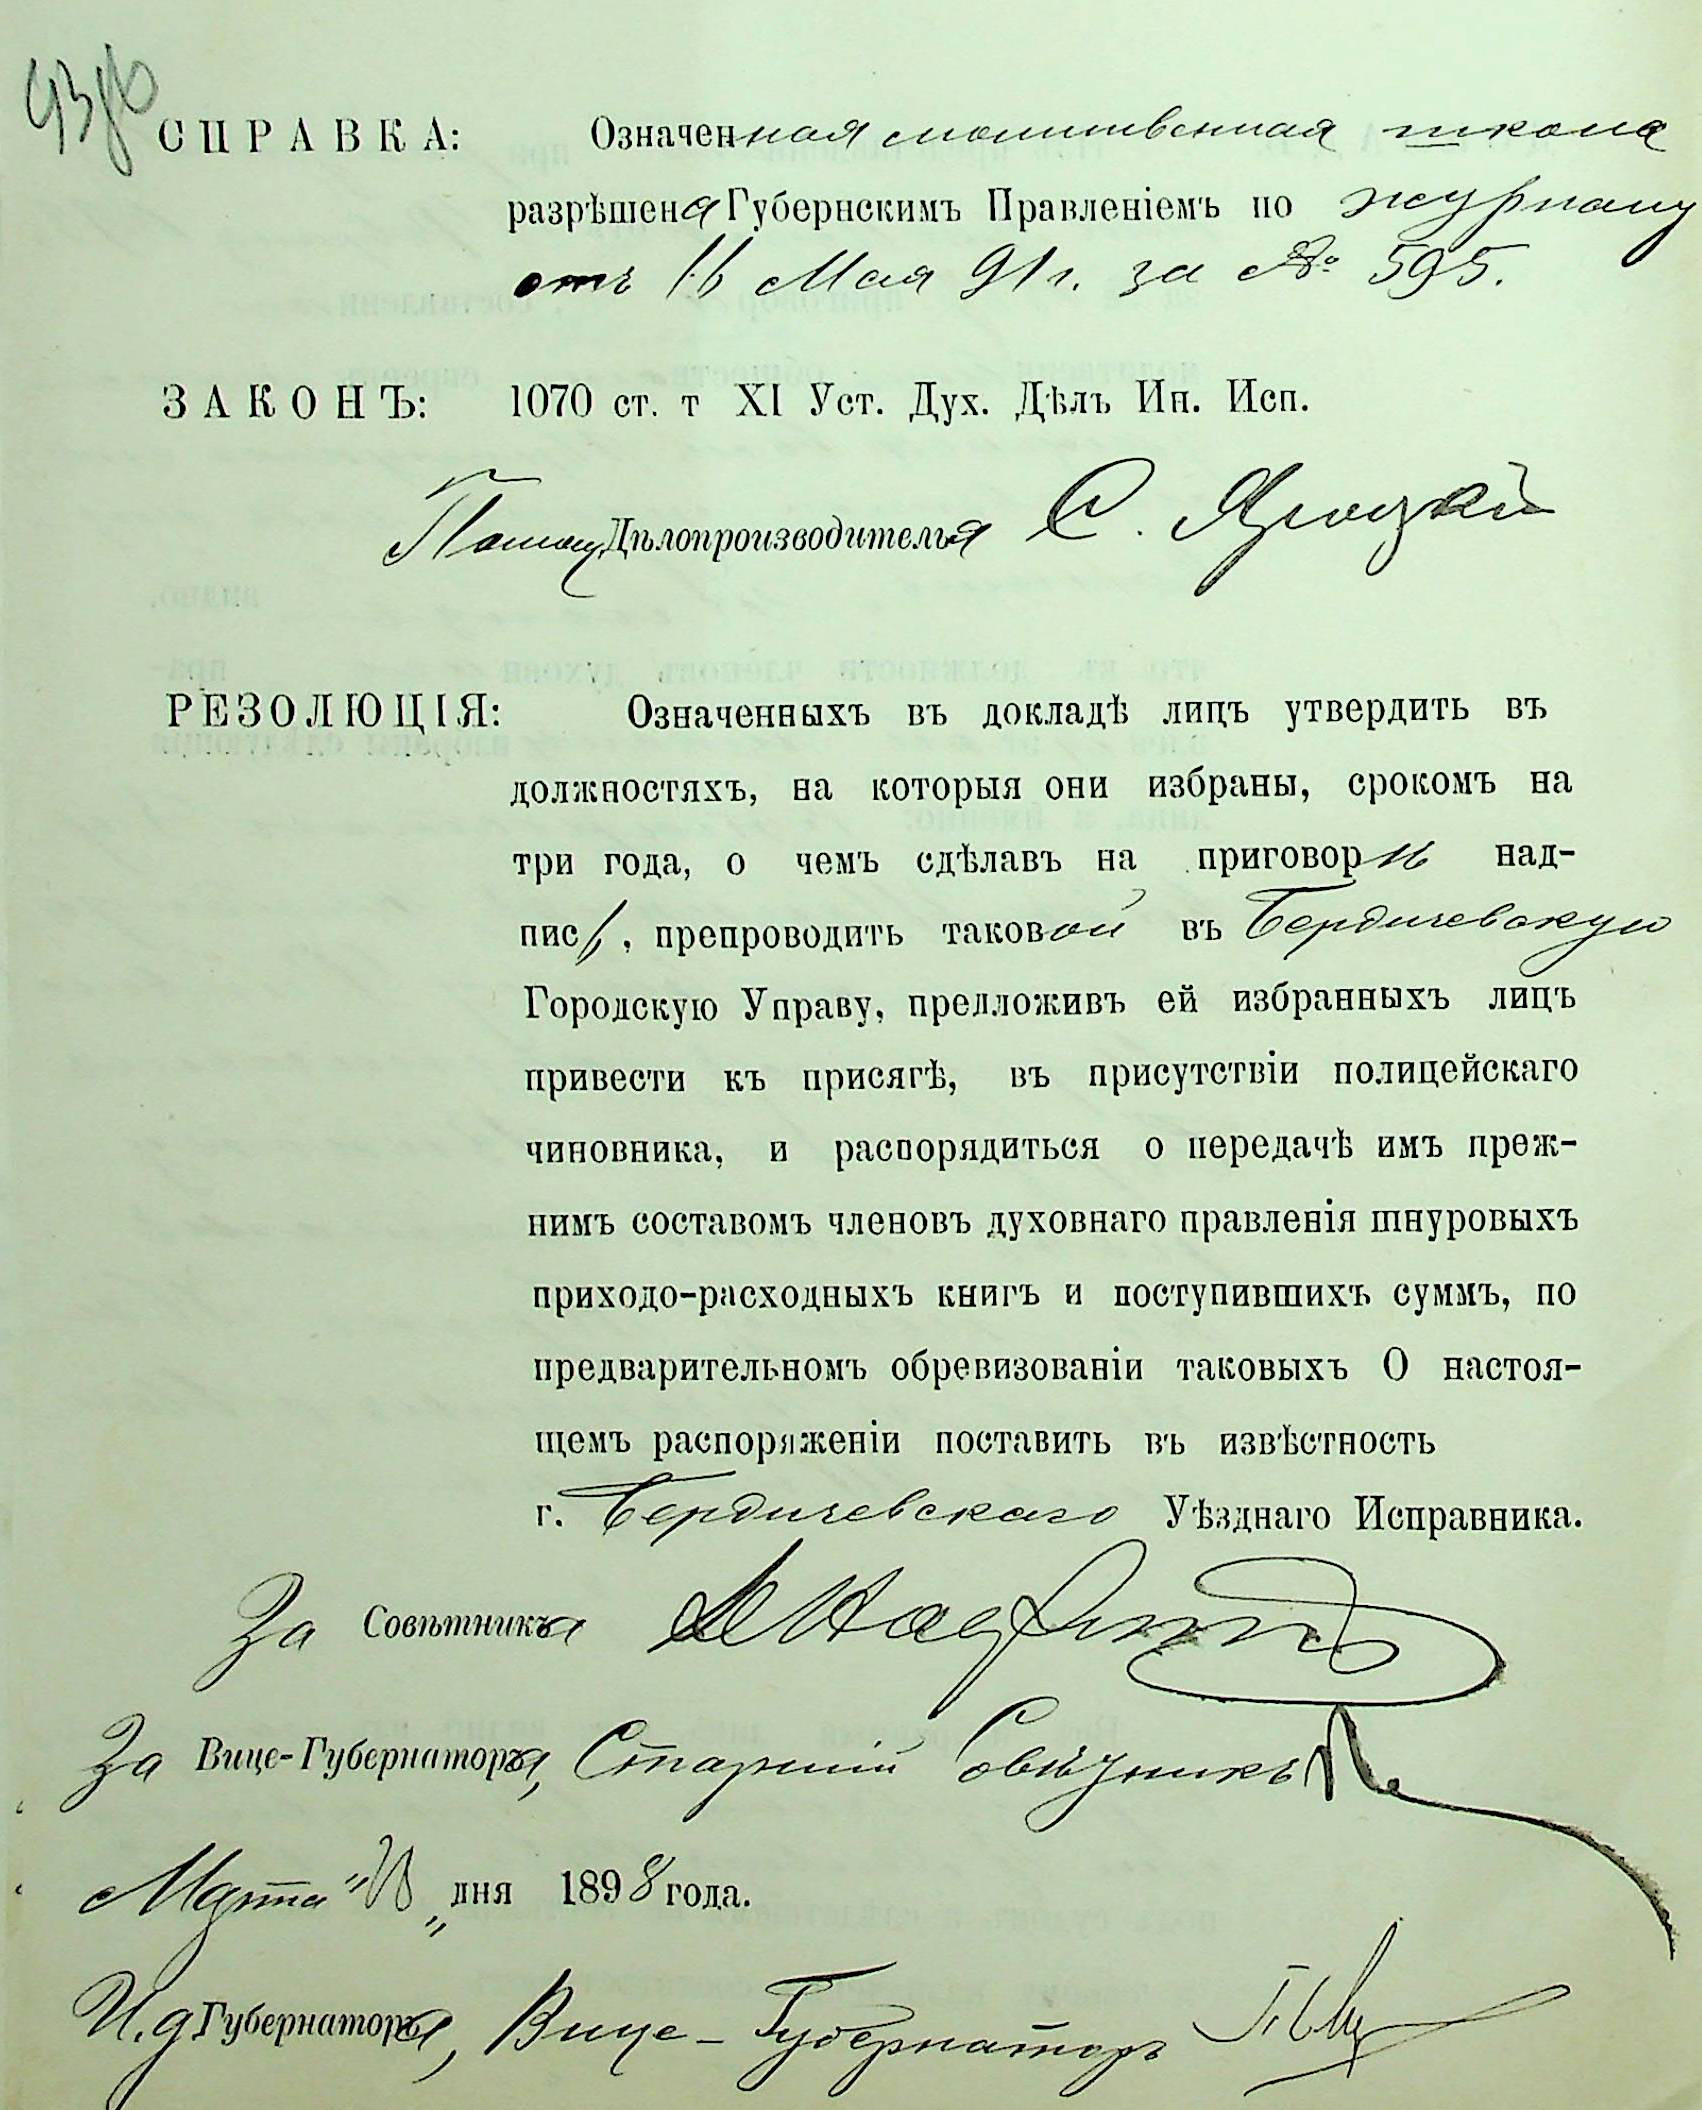 СПРАВКА: Означенная молитвенная школа
разрѣшена Губернскимъ Правленіемъ по журналу
отъ 16 Мая 91 г. за № 595.
ЗАКОНЪ: 1070 ст. т XI Уст. Дух. Дѣлъ Ин. Исп.
Помощ. Дѣлопроизводителя С. Яроцкій
РЕЗОЛЮЦІЯ: Означенныхъ въ докладѣ лицъ утвердить въ
должностяхъ, на которыя они избраны, срокомъ на
три года, о чемъ сдѣлавъ на приговорѣ над-
пись, препроводить таковой въ Бердичевскую
Городскую Управу, предложивъ ей избранныхъ лицъ
привести къ присягѣ, въ присутствіи полицейскаго
чиновника, и распорядиться о передачѣ имъ преж-
нимъ составомъ членовъ духовнаго правленія шнуровыхъ
приходо-расходныхъ книгъ и поступившихъ суммъ, по
предварительномъ обревизованіи таковыхъ О настоя-
щемъ распоряженіи поставить въ извѣстность
г. Бердичевскаго Уѣзднаго Исправника.
За Совѣтника
За Вице-Губернатора, Старшій Совѣтникъ
Марта " „ дня 1898 года.
И. д. Губернатора, Вице-Губернаторъ